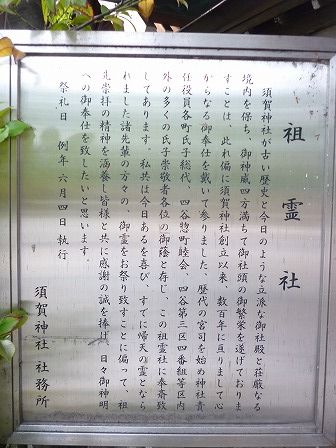 祖霊社
須賀神社が古い歴史と今日のような立派な御社殿と荘厳なる
境内を保ち、御神威四方満ちて御社頭の御繁栄を遂げておりま
すことは、此れ偏に須賀神社創立以来、数百年に亘りまして心
からなる御奉仕を戴いて参りました、歴代の宮司を始め神社責
任役員各町氏子総代、四谷惣町睦会、四谷第三区四番組等区内
外の多くの氏子崇敬者各位の御陰と存じ、この祖霊社に奉斎致
してあります。私共は今日あるを喜び、すでに帰天の霊となら
れました諸先輩の方々の、御霊をお祭り致すことに偏って、祖
先崇拝の精神を涵養し皆様と共に感謝の誠を捧げ、日々御神明
への御奉仕を致したいと思います。
祭礼日　例年六月四日執行
須賀神社社務所